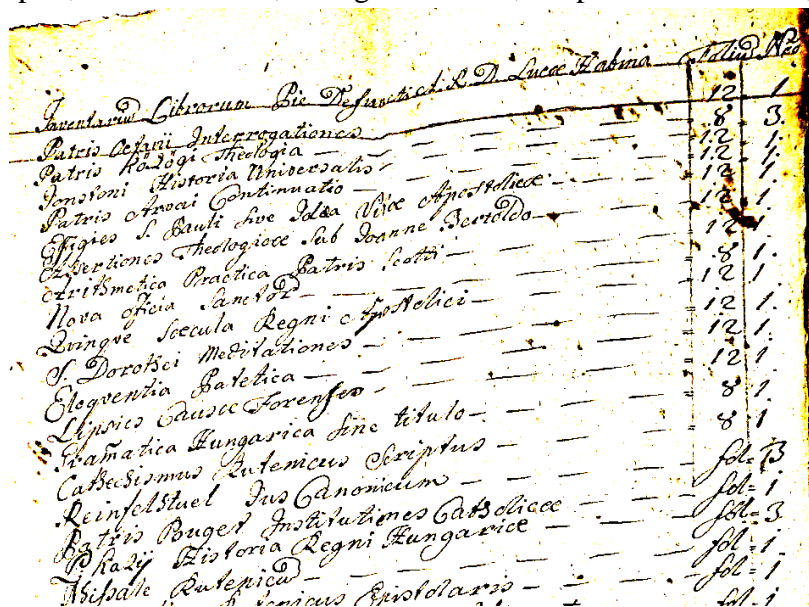 Inventariū Librorum Pie Defuncti A. R. D. Lucae Habina Foliū Nro
Patris Octavii Interrogationes 12 1.
Patris Theologia 8 3.
Jonstoni Historia Universalis 12 1.
Patris Arvai Continuatio 12 1.
Effigies S. Pauli sive Idea Vitae Apostolicae 12 1.
Assertiones Theologicae sub Joanne Bertoldo 12 1.
Arithmetica Practica Patris Scotti 12 1
Nova officia Sanctor̄ 8 1.
Qvinqve Saecula Regni Apostolici 12 1
S. Dorothei Meditationes 12 1.
Eloqventia Patetica 12 1.
Lipsico Causae Forenses 12 1
Gram̄atica Hungarica sine titulo 8 1.
Cathechismus Rutenicus Scriptus 8 1
Reinfelstuel Jus Canonicum fol= 3
Patris Pouget Institutiones Catholicae fol= 1
Historia Regni Hungaricae fol= 3
Missale Rutenicū fol= 1.
Rutenicus Epistolaris fol= 1.
fol= 1